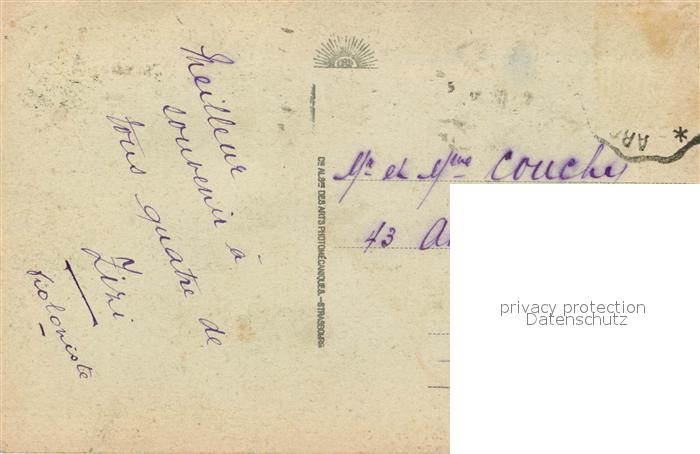 Meilleur
souvenir à
tous quatre de
Zizi
violoniste
Cie ALSne DES ARTS PHOTOMÉCANIQUES. — STRASBOURG
Mr et Mme Couchy
43
privacy protection
Datenschutz
* AR